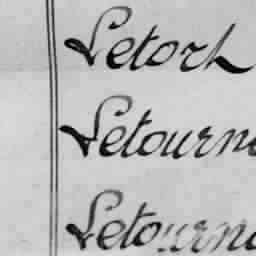 Letorh
Létourne
Letourne